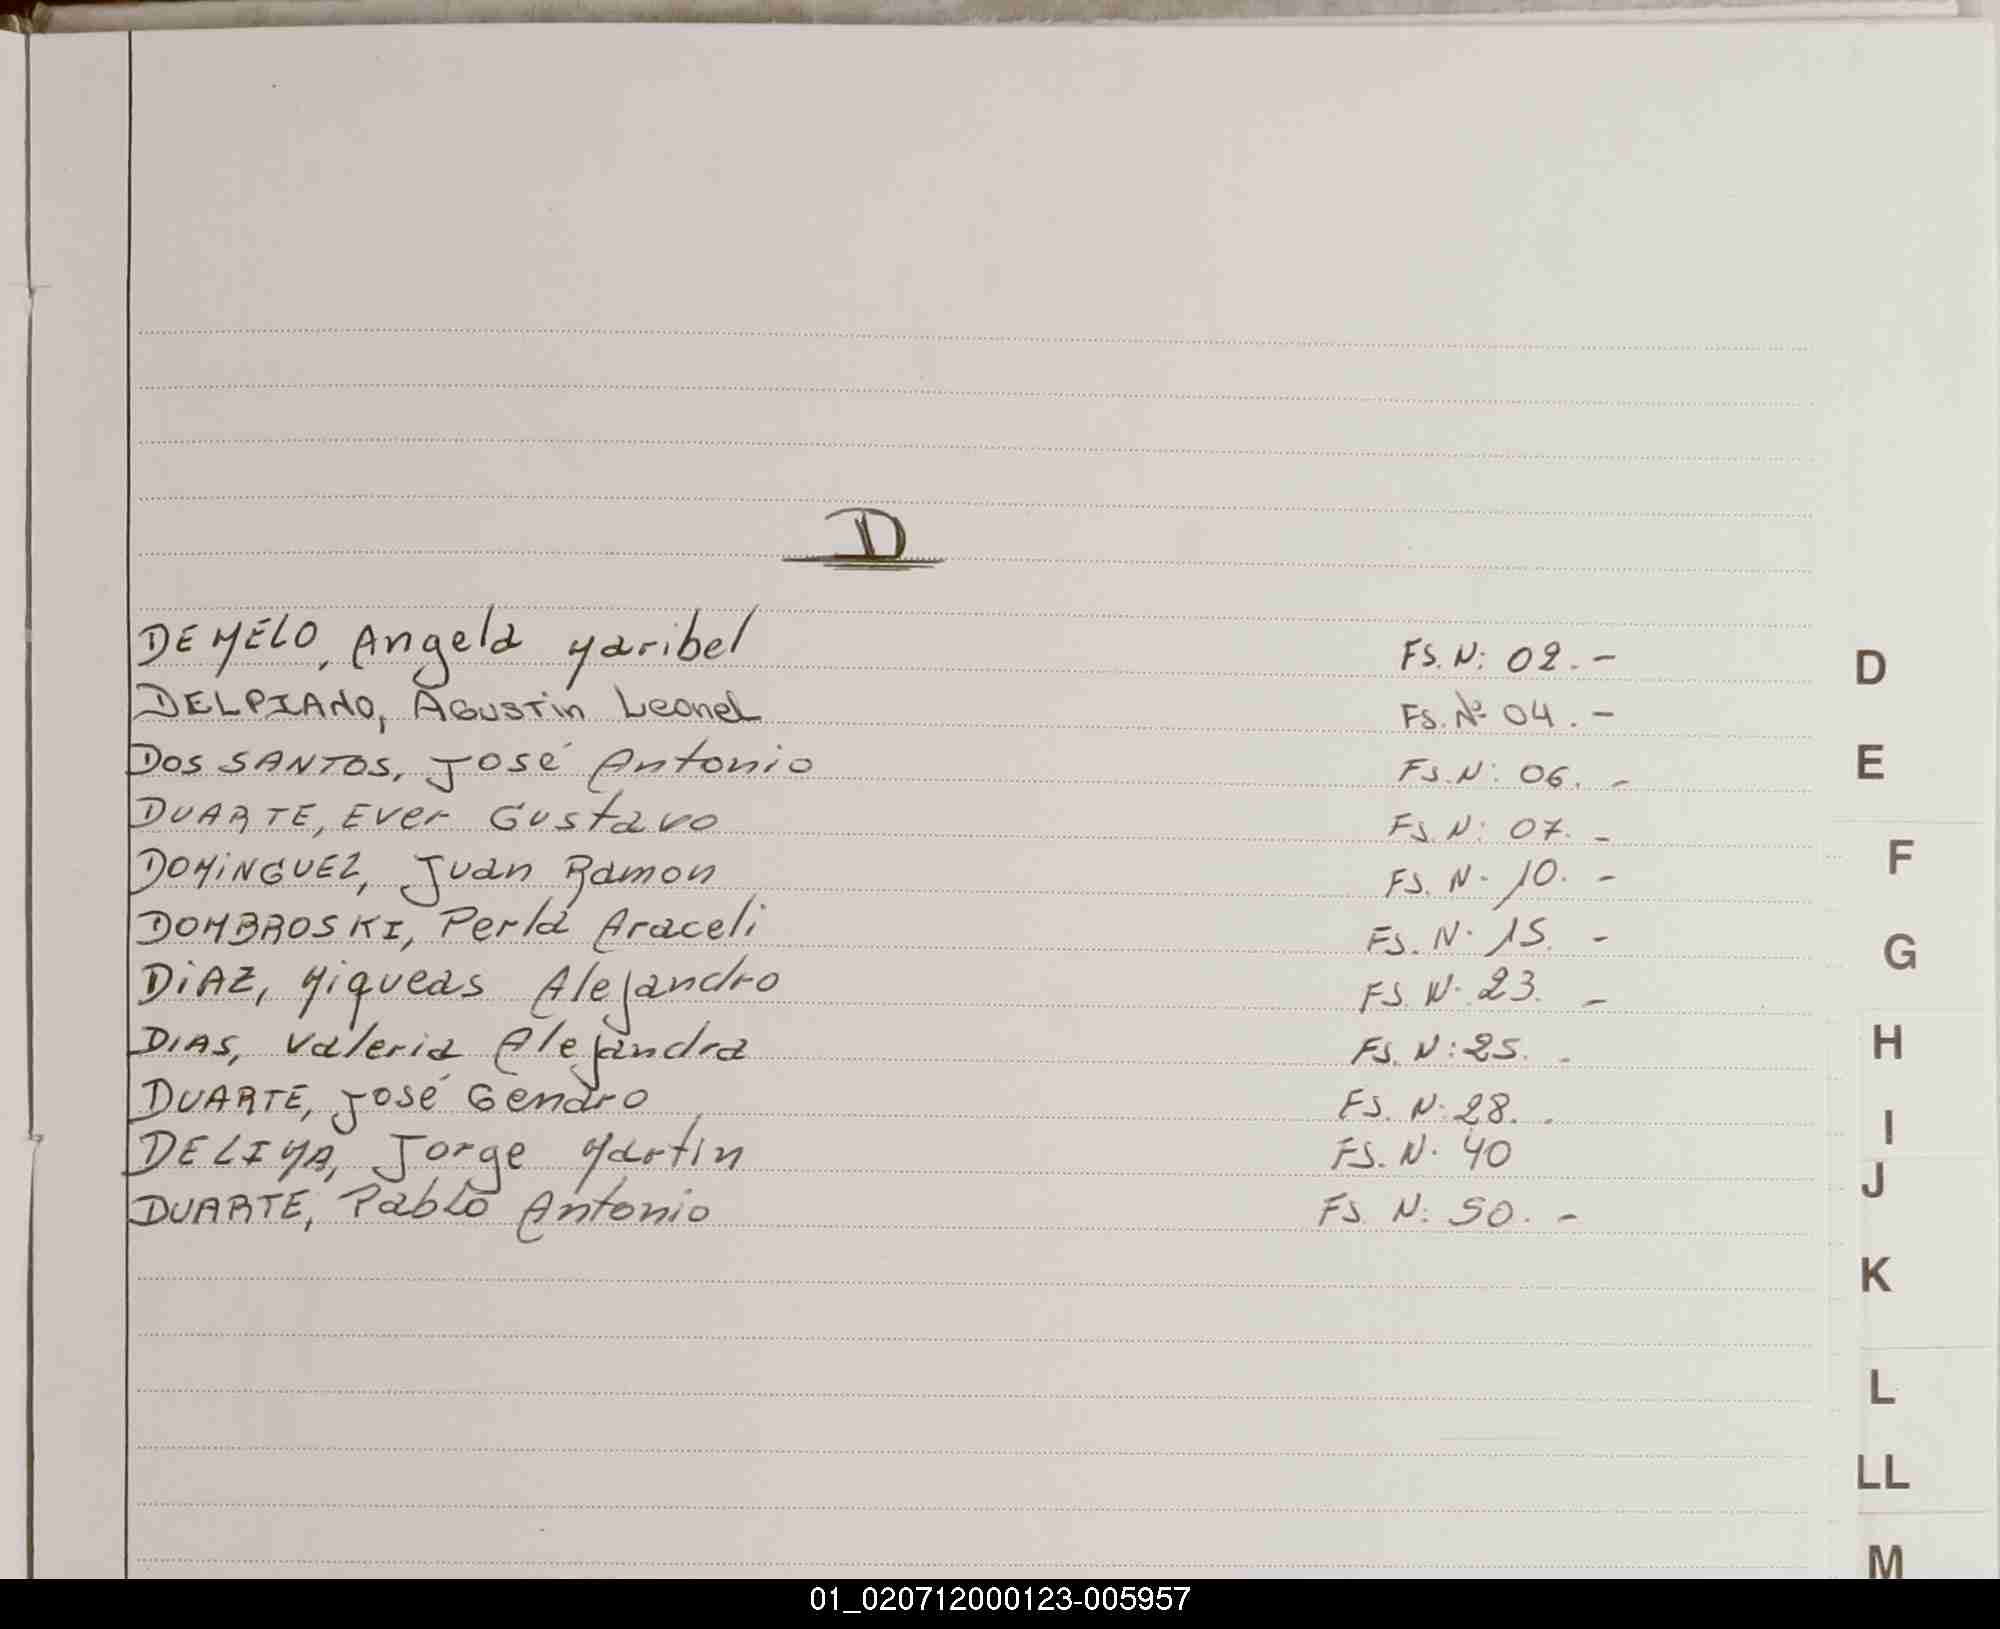 D
DEMELO, Angela Maribel FS. N: 02. -
DELPIANO, Agustin Leonel FS. Nº 04. -
DOS SANTOS, José Antonio FS. N: 06. -
DUARTE, Ever Gustavo FS. N: 07. -
DOMINGUEZ, Juan Ramon FS. N. 10. -
DOMBROSKI, Perla Araceli FS. N. 15. -
DIAZ, Miqueas Alejandro FS. N. 23. -
DIAS, Valeria Alejandra FS. N: 25. -
DUARTE, José Genaro FS. N: 28. -
DELIMA, Jorge Martin FS. N. 40
DUARTE, Pablo Antonio FS. N: 50. -
D
E
F
G
H
I
J
K
L
LL
M
01_020712000123-005957